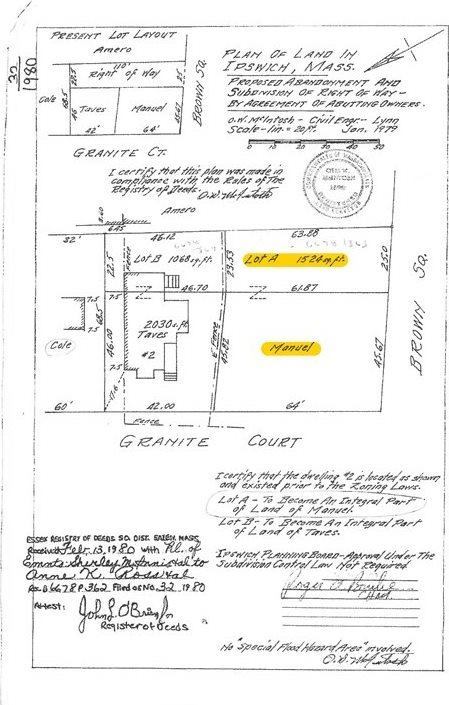 32
1980
PRESENT LOT LAYOUT
Amero
110'
Right of Way
25'
Cole
68.5
22.5
46
Taves
Manuel
45.67
42'
64'
BROWN SQ.
GRANITE CT.
PLAN OF LAND IN
IPSWICH, MASS.
PROPOSED ABANDONMENT AND
SUBDIVISION OF RIGHT OF WAY -
BY AGREEMENT OF ABUTTING OWNERS.
O.W. McIntosh - Civil Engr. - Lynn
Scale - 1in. = 20ft. Jan. 1979
0 10 20 30 40 50
I certify that this plan was made in
compliance with the Rules of The
Registry of Deeds.
O.W. McIntosh
Amero
2.60
6.45
32'
46.12
63.88
22.5
Lot B 1068 sq. ft.
23.53
Lot A 1526 sq. ft.
25.0
7.5
46.70
61.87
7.5
68.5
Cole
46.00
2030 s. ft.
Taves
#2
Fence
45.82
Manuel
45.67
BROWN SQ.
7.5
7.5
17.6
60'
42.00
64'
Fence
GRANITE COURT
I certify that the dwelling #2 is located as shown
and existed prior to the Zoning Laws.
Lot A - To Become An Integral Part
of Land of Manuel.
Lot B - To Become An Integral Part
of Land of Taves.
Ipswich Planning Board - Approval Under The
Subdivision Control Law Not Required
ESSEX REGISTRY OF DEEDS, SO. DIST. SALEM, MASS.
Received Feb. 13, 1980 with Pl. of
Shirley
to
Anne K.
Rec. B 6678 P. 362 Filed as No. 32 1980
Attest:
John L O'Brien Jr
Register of Deeds
No "Special Flood Hazard Area" involved.
O.W. McIntosh